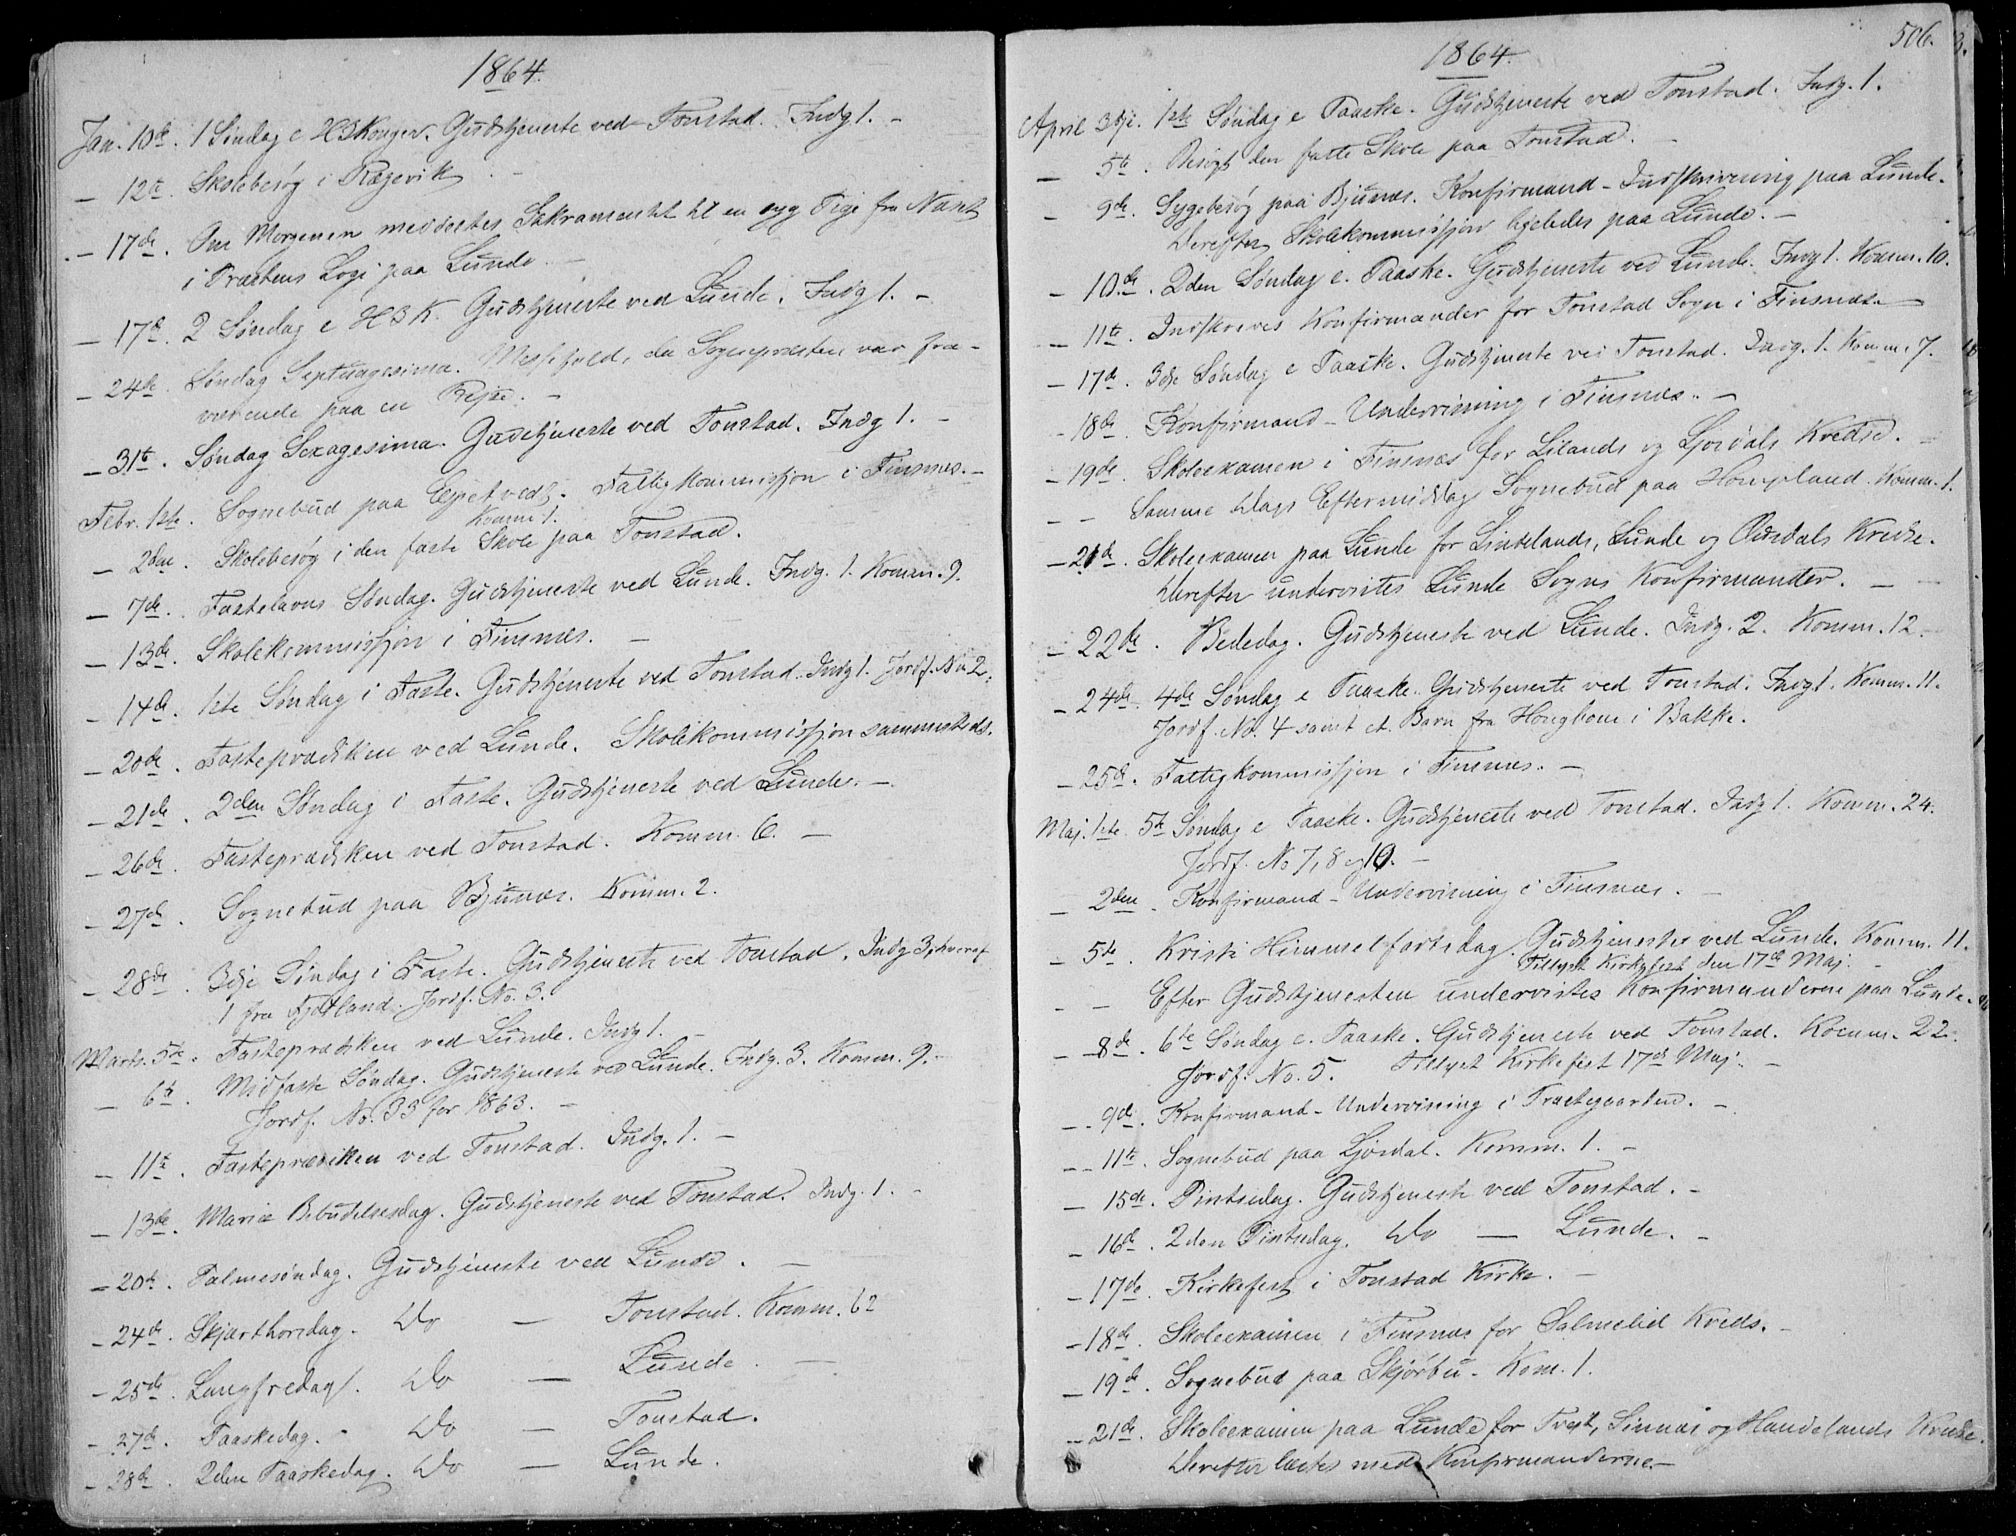 1864.
Jan. 10de. 1 Söndag e H 3 Konger. Gudstjeneste ved Tonstad. Indg 1. –
– 12te. Skolebesøg i Regevik. –
– 17de. Om Morgenen meddeeltes Sakramentet til en syg Pige fra
i Præstens Logi paa Lunde. –
– 17de. 2 Söndag e H 3 K. Gudstjeneste ved Lunde. Indg 1. –
– 24de. Søndag Septuagesima. Messefald, da Sognepræsten var fra-
værende paa en Rejse. –
– 31te. Søndag Sexagesima. Gudstjeneste ved Tonstad. Indg 1. –
Febr. 1ste. Sognebud paa Fattigkommissjon i Finsnæs. –
Komm 1.
– 2den. Skolebesøg i den faste Skole paa Tonstad.
– 7de. Fastelavns Søndag. Gudstjeneste ved Lunde. Indg. 1. Komm. 9.
– 13de. Skolekommissjon i Finsnæs. –
– 14de. 1ste Søndag i Faste. Gudstjeneste ved Tonstad. Indg 1. Jordf. No 2.
– 20de. Fasteprædiken ved Lunde. Skolekommissjon sammesteds.
– 21de. 2den Søndag i Faste. Gudstjeneste ved Lunde. –
– 26de. Fasteprædiken ved Tonstad. Komm. 6. –
– 27de. Sognebud paa Bjunæs. Komm. 2.
– 28de. 3dje Söndag i Faste. Gudstjeneste ved Tonstad. Indg 3, hvoraf
1 fra Fjotland. Jordf. No. 3.
Marts. 5te. Fasteprædiken ved Lunde. Indg 1. –
– 6te. Midfaste Søndag. Gudstjeneste ved Lunde. Indg. 3. Komm. 9. –
Jordf. No. 33 for 1863. –
– 11te. Fasteprædiken ved Tonstad. Indg. 1. –
– 13de. Mariæ Bebudelsesdag. Gudstjeneste ved Tonstad. Indg. 1. –
– 20de. Palmesöndag. Gudstjeneste ved Lunde. –
– 24de. Skjærthorsdag. Do – Tonstad. Komm. 62
– 25de. Langfredag. Do – Lunde. –
– 27de. Paaskedag. Do – Tonstad.
– 28de. 2den Paaskedag. Do – Lunde.
506.
1864.
April 3dje. 1ste Søndag e Paaske. Gudstjeneste ved Tonstad. Indg. 1.
– 5te. Besøgt den faste Skole paa Tonstad. –
– 9de. Sygebesøg paa Bjunæs. Konfirmand-Indskrivning paa Lunde.
Derefter Skolekommissjon ligeledes paa Lunde. –
– 10de. 2den Søndag e. Paaske. Gudstjeneste ved Lunde. Indg 1. Komm. 10.
– 11te. Indskreves Konfirmander for Tonstad Sogn i Finsnæs. –
– 17de. 3dje Søndag e Paaske. Gudstjeneste ved Tonstad. Indg. 1. Komm. 7.
– 18de. Konfirmand-Undervisning i Finsnæs. –
– 19de. Skoleexamen i Finsnæs for Lilands og Ljosdals Kredse. –
– – Samme Dags Eftermiddag Sognebud paa Komm. 1.
– 21de. Skoleexamen paa Lunde for Lindelands, Lunde og Ousdals Kredse.
Derefter undervistes Lunde Sogns Konfirmander. –
– 22de. Bededag. Gudstjeneste ved Lunde. Indg. 2. Komm. 12.
– 24de. 4de Søndag e Paaske. Gudstjeneste ved Tonstad. Indg 1. Komm. 11.
Jordf. No. 4 samt et Barn fra Hompbom i Bakke.
– 25de. Fattigkommissjon i Finsnæs. –
Maj. 1ste. 5te Søndag e Paaske. Gudstjeneste ved Tonstad. Indg 1. Komm. 24.
Jordf. No 7, 8 og 10. –
– 2den. Konfirmand-Undervisning i Finsnæs. –
– 5te. Kristi Himmelfartsdag. Gudstjeneste ved Lunde. Komm. 11.
Tillyst Kirkefest den 17de Maj. –
– – Efter Gudstjenesten undervistes Konfirmanderne paa Lunde.
– 8de. 6te Søndag e. Paaske. Gudstjeneste ved Tonstad. Komm. 22.
Jordf. No. 5. Tillyst Kirkefest 17de Maj. –
– 9de. Konfirmand-Undervisning i Præstegaarden. –
– 11te. Sognebud paa Ljosdal. Komm. 1. –
– 15de. Pintsedag. Gudstjeneste ved Tonstad. –
– 16de. 2den Pintsedag. Do – Lunde. –
– 17de. Kirkefest i Tonstad Kirke. –
– 18de. Skoleexamen i Finsnæs for Salmelid Kreds. –
– 19de. Sognebud paa Skjørbu. Kom. 1.
– 21de. Skoleexamen paa Lunde for Tveit, Sinnæs og Handelands Kredse.
Derefter læstes med Konfirmanderne. –